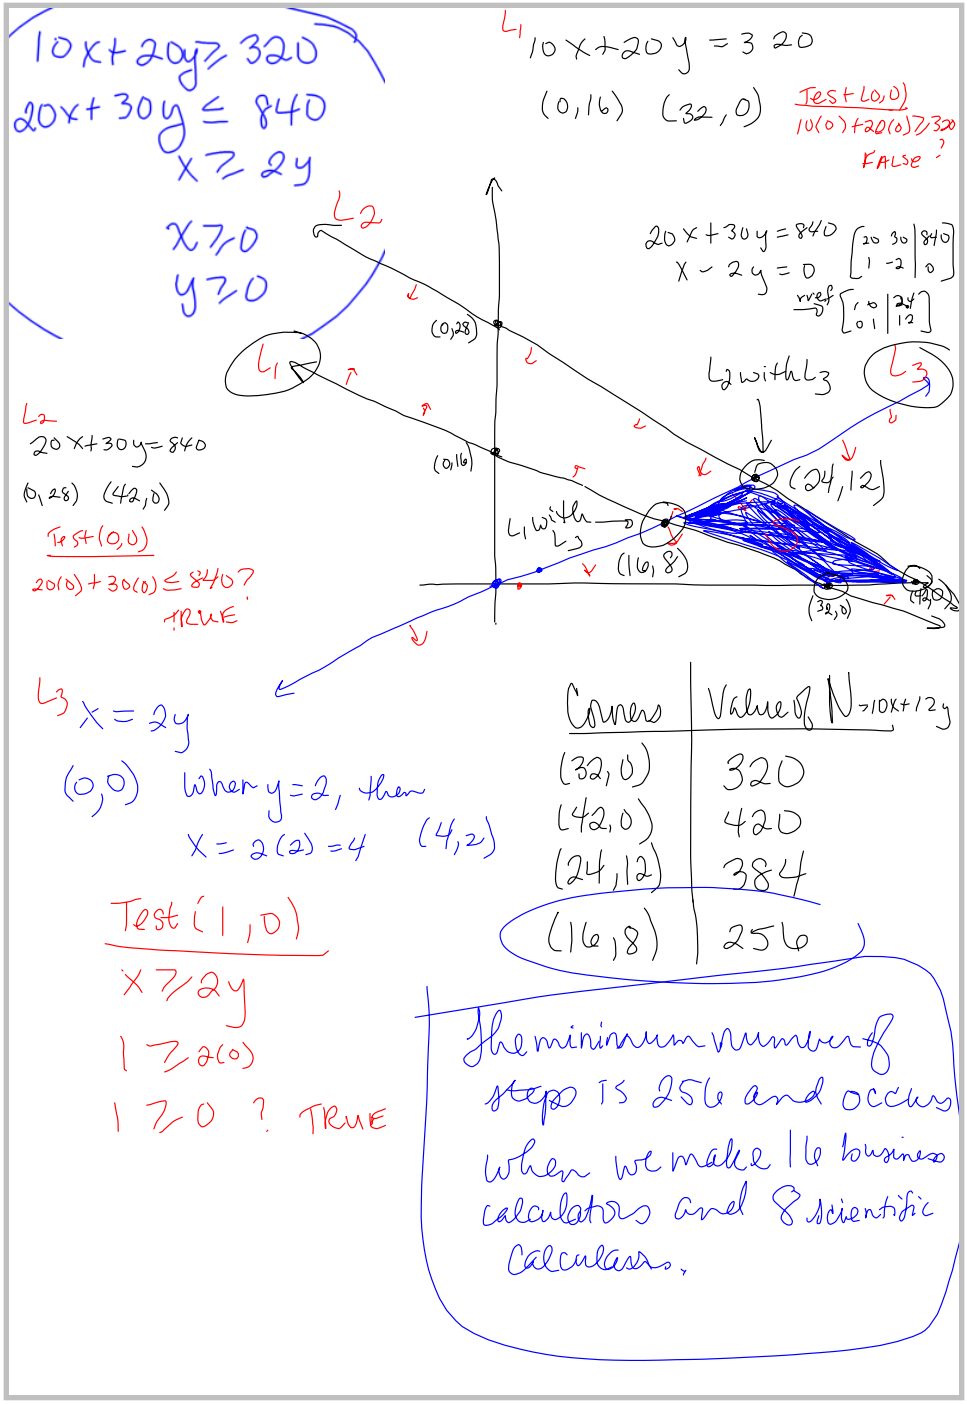 10x+20y≥320
20x+30y ≤ 840
x ≥ 2y
x≥0
y≥0
L1
10x+20y = 320
(0,16) (32,0)
Test (0,0)
10(0)+20(0)≥320
?
FALSE
L2
20x+30y=840
x-2y=0
[20 30 | 840]
[1 -2 | 0]
rref → [1 0 | 24]
[0 1 | 12]
(0,28)
L1
L2 with L3
L3
L2
20x+30y=840
(0,28) (42,0)
Test (0,0)
20(0)+30(0)≤840?
TRUE
(0,16)
(24,12)
L1 with
L3
(16,8)
(32,0)
(42,0)
L3
x = 2y
(0,0) when y=2, then
x = 2(2) = 4 (4,2)
Test (1,0)
x ≥ 2y
1 ≥ 2(0)
1 ≥ 0 ? TRUE
Corners Value of N=10x+12y
(32,0) 320
(42,0) 420
(24,12) 384
(16,8) 256
The minimum number of
steps is 256 and occurs
when we make 16 business
calculators and 8 scientific
calculators.